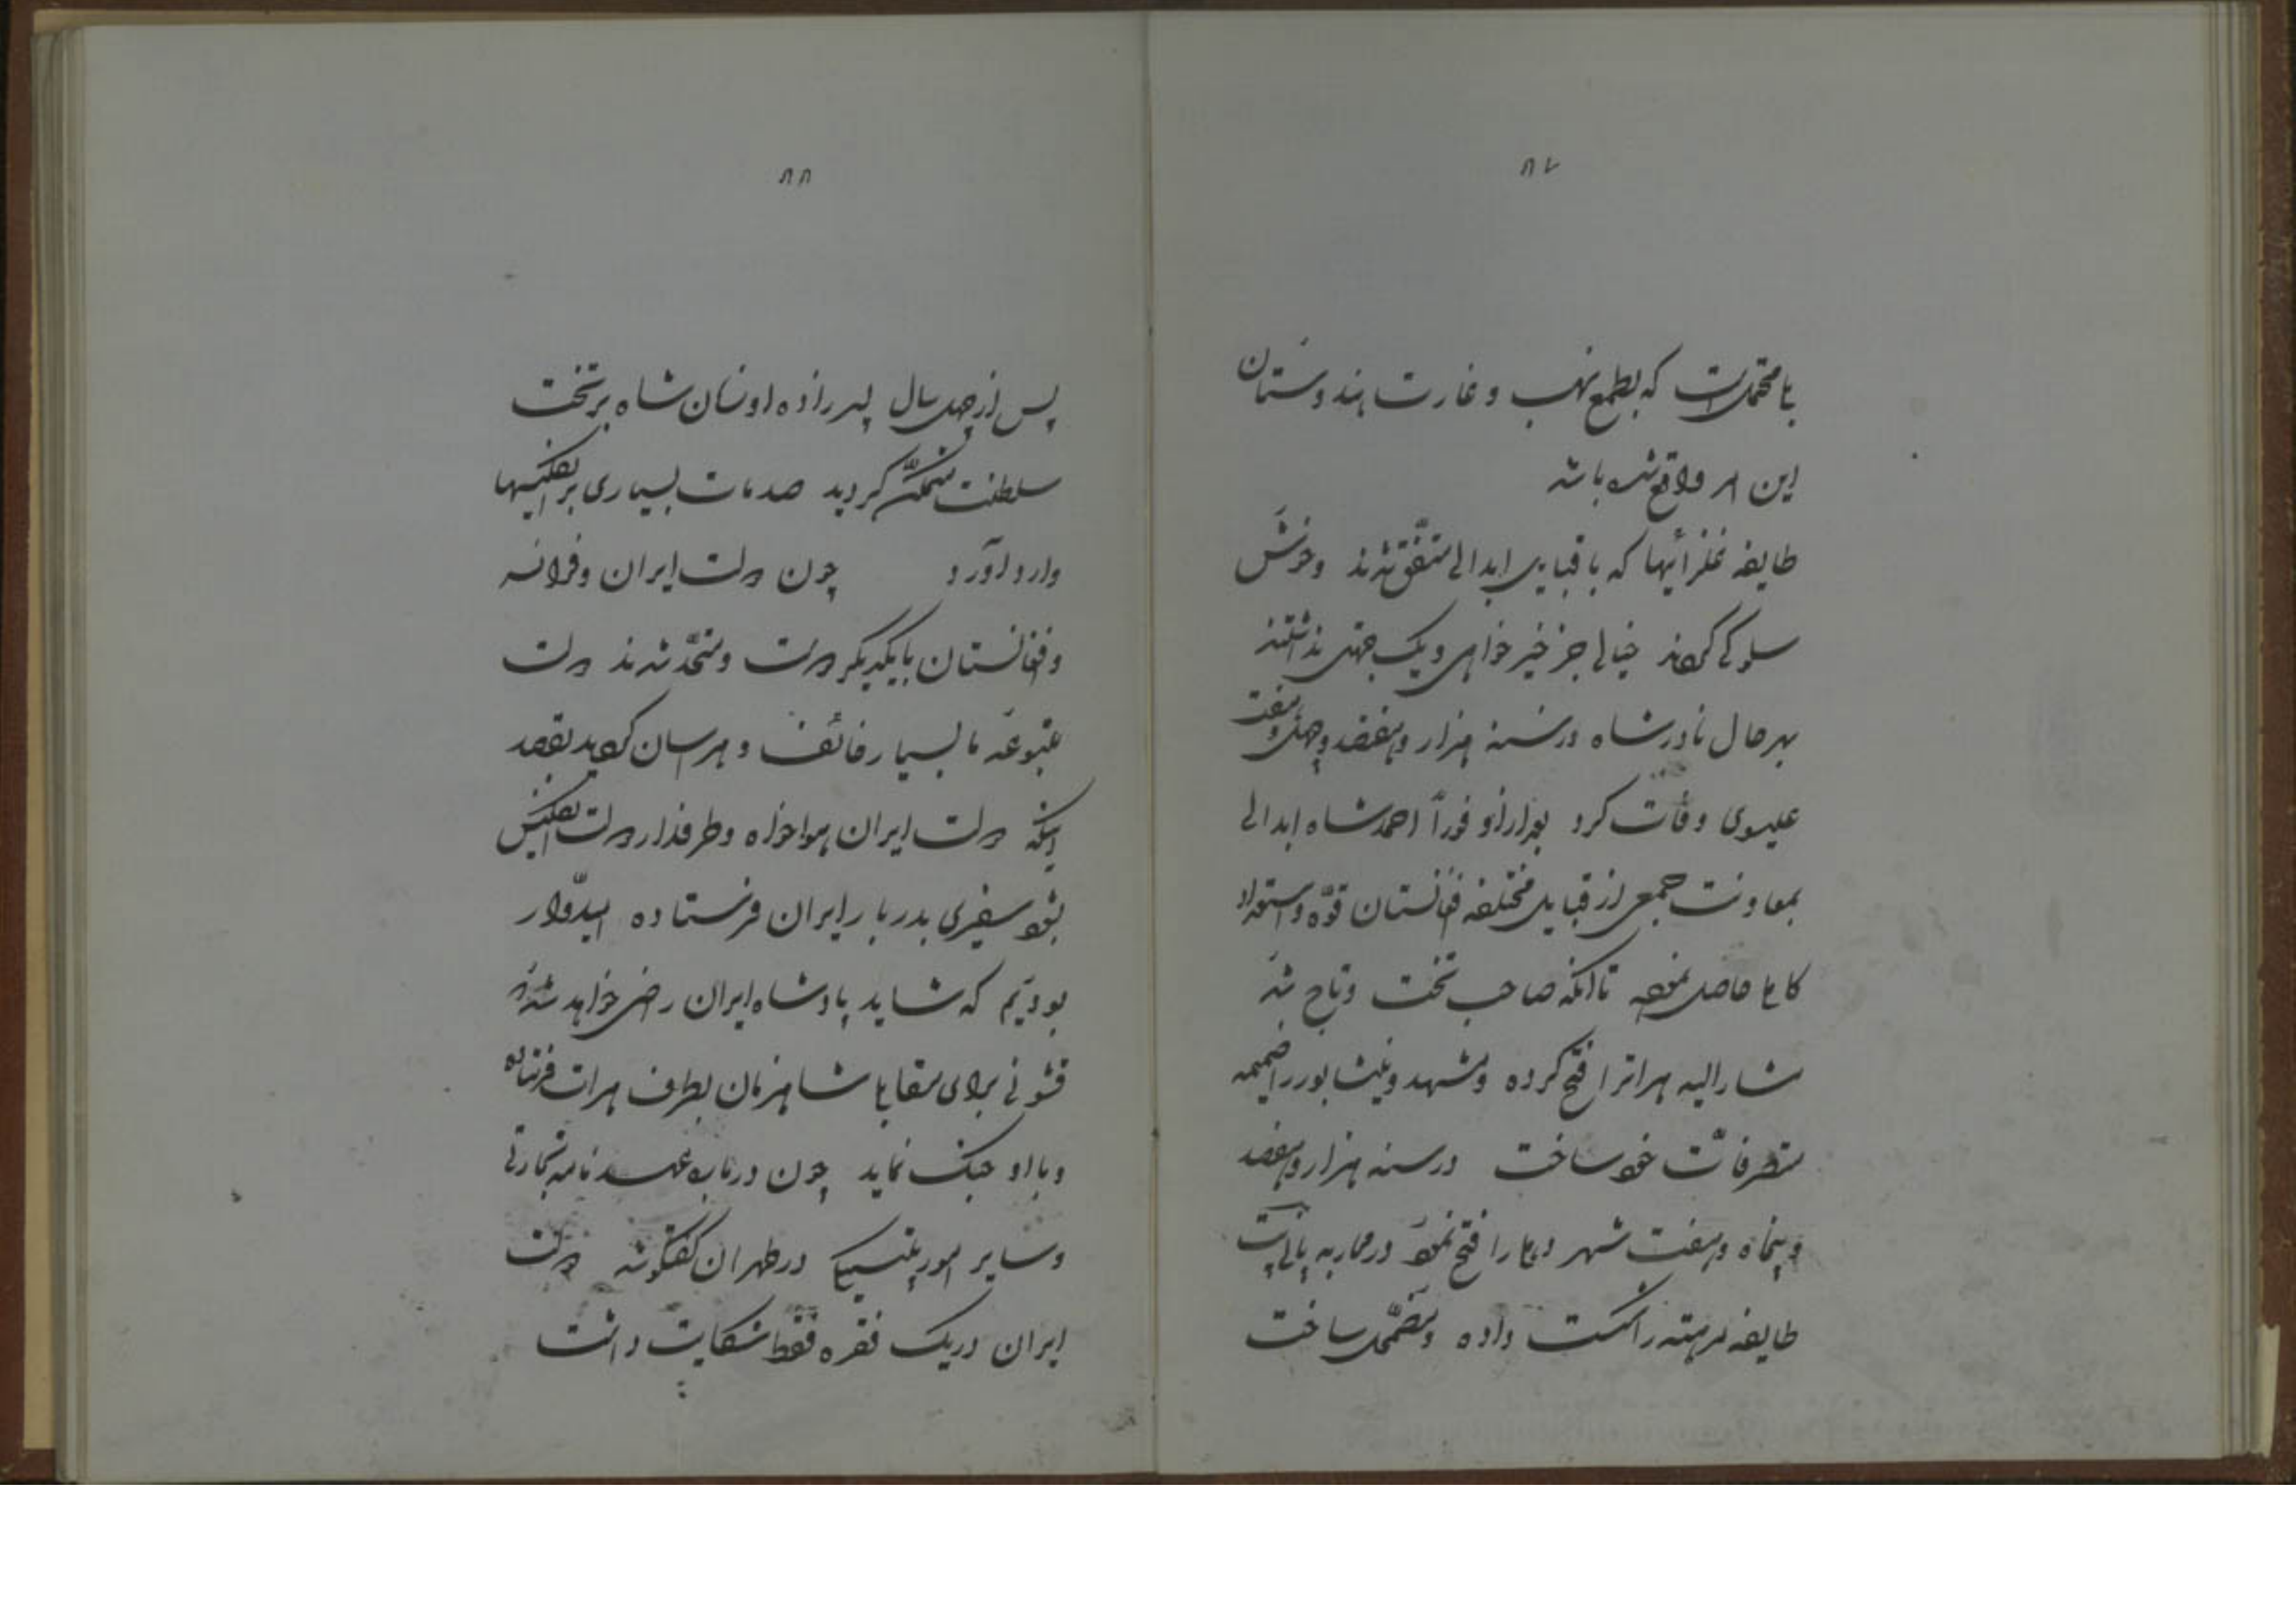 ۸۷
یا محتمل است که بطمع نهب و غارت هندوستان
این امر واقع شده باشد
طایفه غلزائیها که با قبایل ابدالی متفق شدند و خوش
سلوکی کردند خیالی جز خیر خواهی و یک جهتی نداشتند
بهر حال نادرشاه در سنه هزار و هفتصد و چهل و هفت
عیسوی وفات کرد بعد از او فوراً احمدشاه ابدالی
بمعاونت جمعی از قبایل مختلفه افغانستان قوّه و استعداد
کاملی حاصل نموده تا آنکه صاحب تخت و تاج شد
مشارالیه هراترا فتح کرده و مشهد و نیشابور را ضمیمه
متصرفات خود ساخت در سنه هزار و هفتصد
و پنجاه و هفت شهر دهلی را فتح نمود در محاربه پانی پت
طایفه مرهته را شکست داده و مضمحل ساخت
۸۸
پس از چهل سال پسرزاده او زمان شاه بر تخت
سلطنت متمکّن گردید صدمات بسیاری بر انگلیسها
وارد آورد چون دولت ایران و فرانسه
و افغانستان با یکدیگر دوست و متحّد شدند دولت
متبوعه ما بسیار خائف و هراسان گردید بقصد
اینکه دولت ایران هواخواه و طرفدار دولت انگلیس
بشود سفیری بدربار ایران فرستاده امیدّوار
بودیم که شاید پادشاه ایران راضی خواهد شد که
قشونی برای مقابل شاه زمان بطرف هرات فرستاده
و با او جنگ نماید چون درباره عهدنامه تجارتی
و سایر امور پلتیکی در طهران گفتگو شد دولت
ایران در یک فقره فقط شکایت داشت